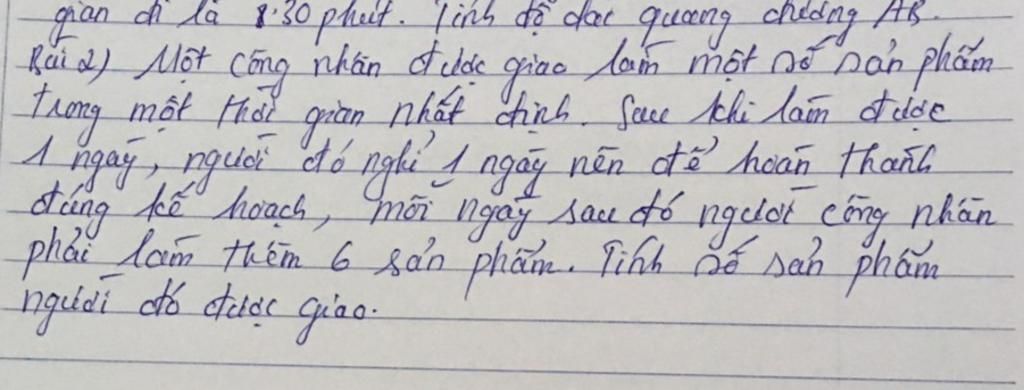 gian đi là 1:30 phút. Tính độ dài quãng đường AB.
Bài 2) Một công nhân được giao làm một số sản phẩm
trong một thời gian nhất định. Sau khi làm được
1 ngày, người đó nghỉ 1 ngày nên để hoàn thành
đúng kế hoạch, mỗi ngày sau đó người công nhân
phải làm thêm 6 sản phẩm. Tính số sản phẩm
người đó được giao.